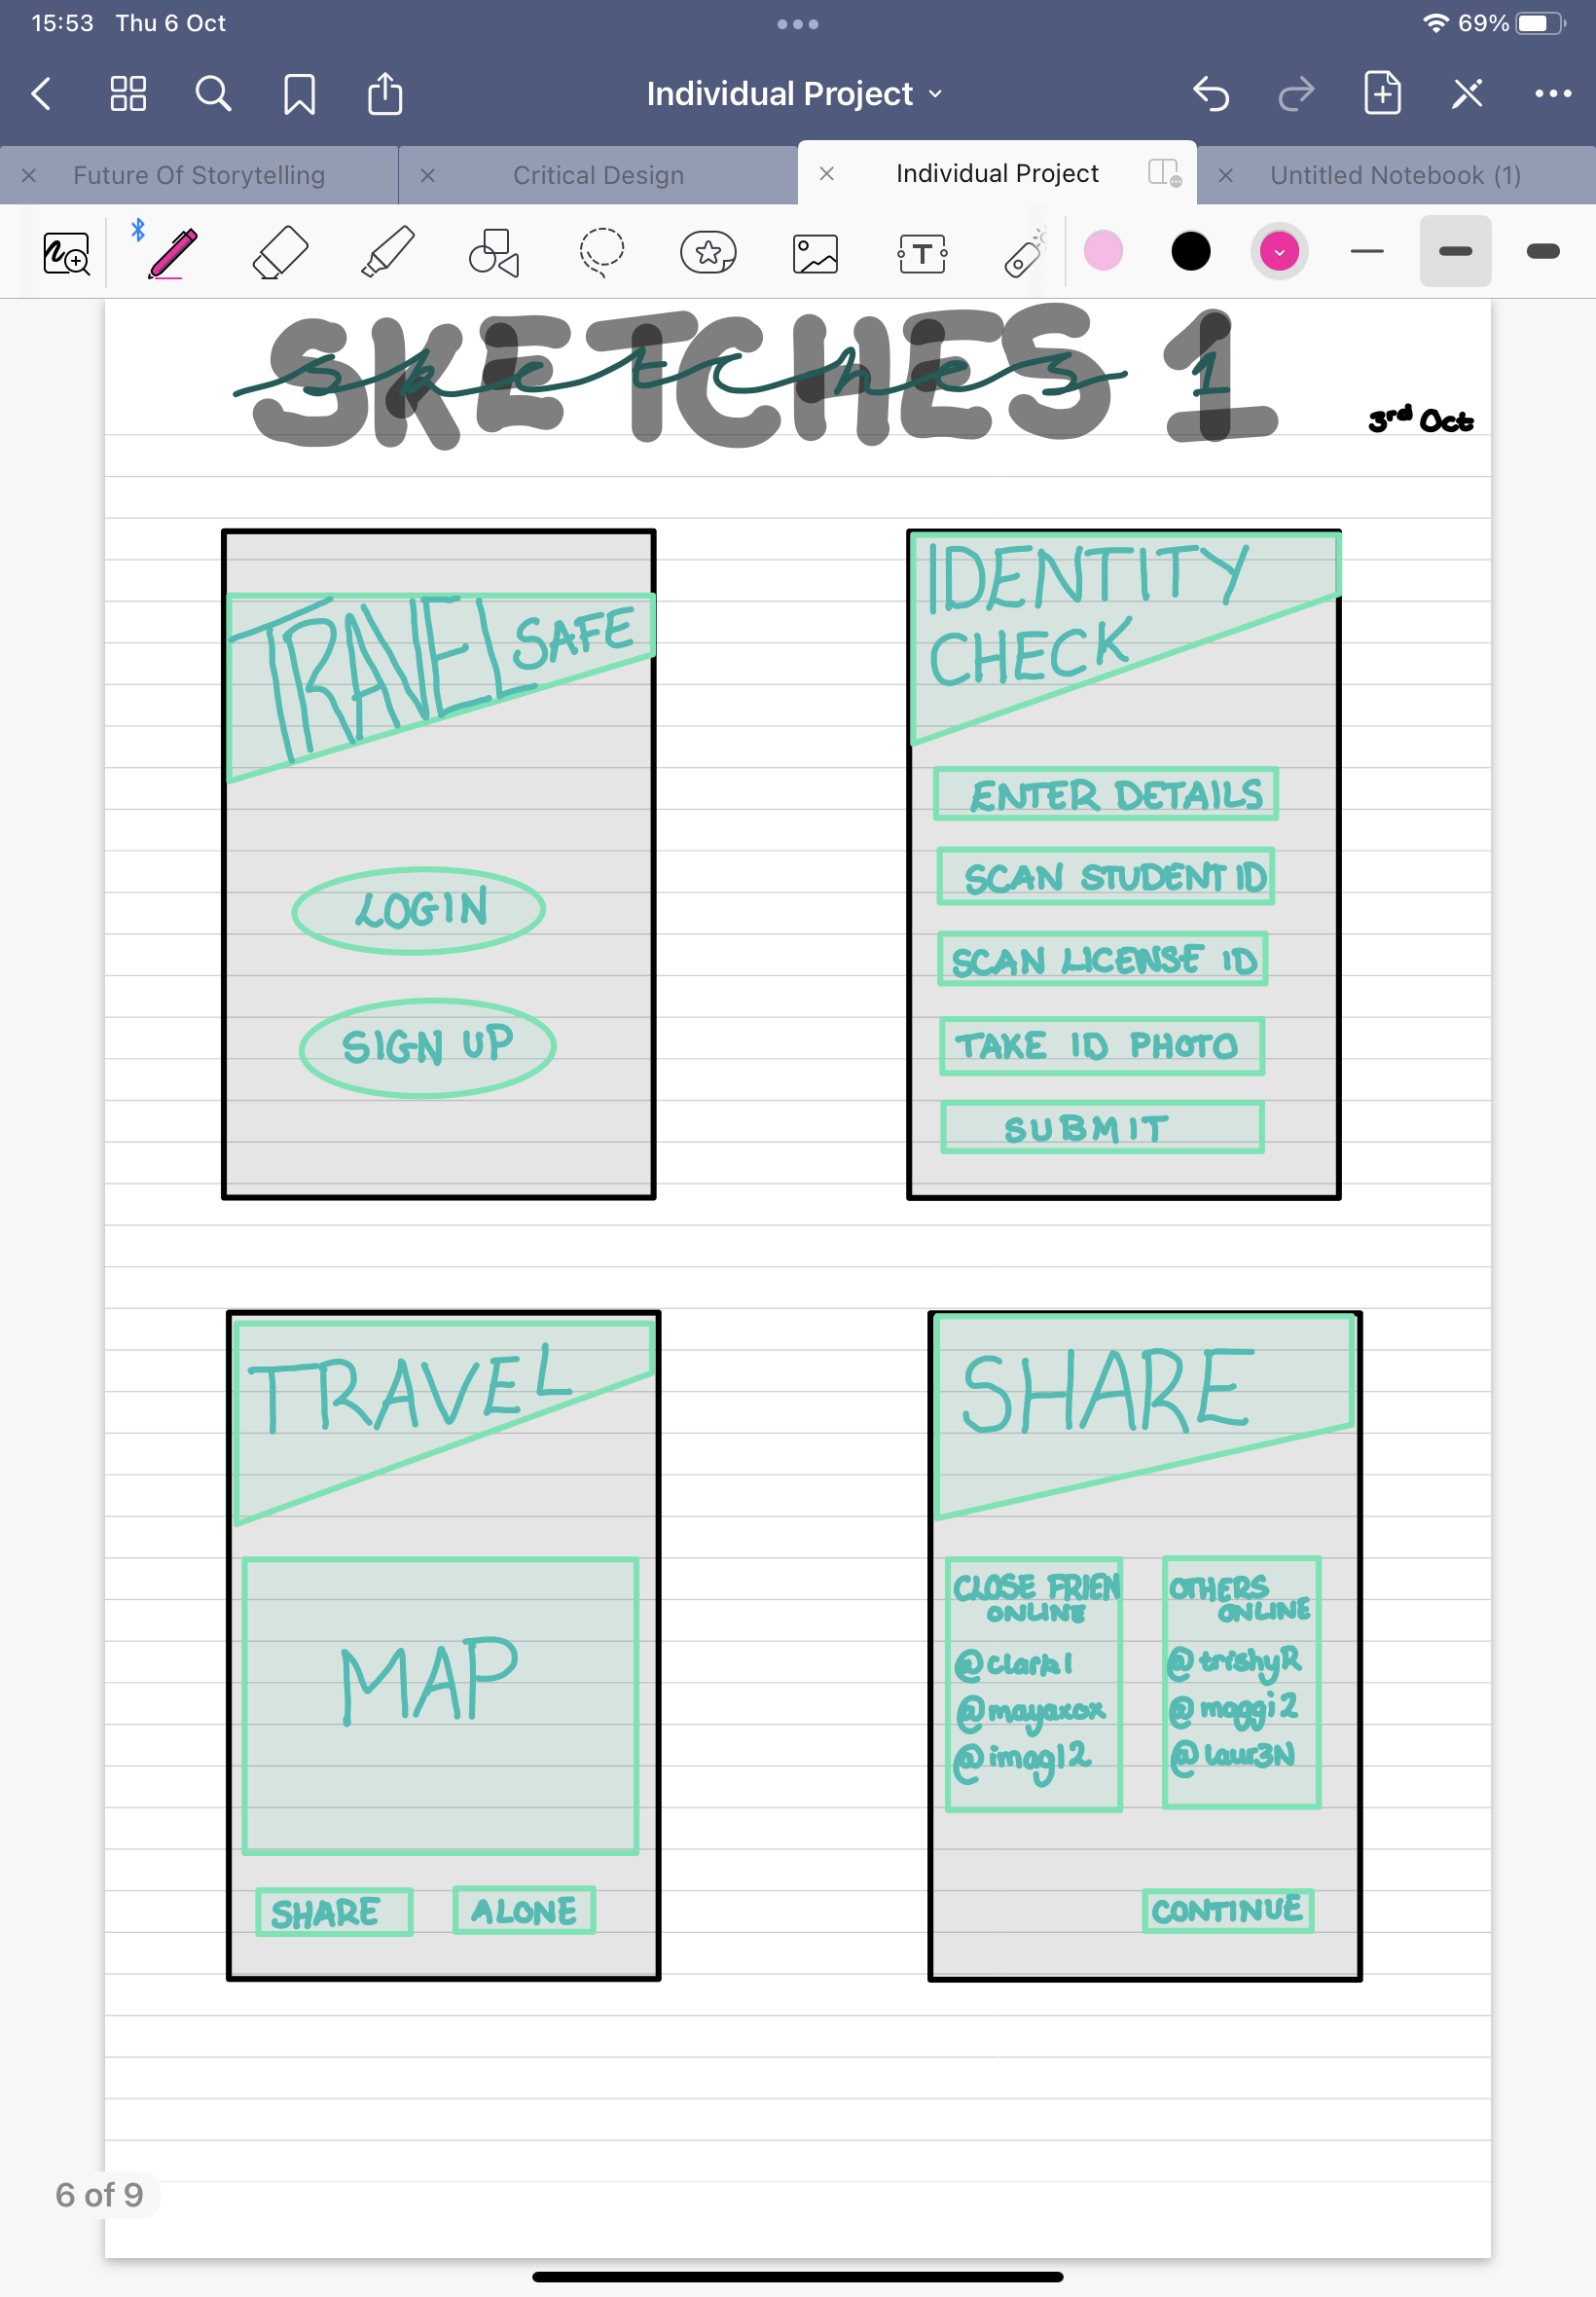 15:53 Thu 6 Oct
69%
Individual Project
Future Of Storytelling
Critical Design
Individual Project
Untitled Notebook (1)
T
SKETCHES 1
sketches 1
3rd Oct
TRAVEL SAFE
LOGIN
SIGN UP
IDENTITY
CHECK
ENTER DETAILS
SCAN STUDENT ID
SCAN LICENSE ID
TAKE ID PHOTO
SUBMIT
TRAVEL
MAP
SHARE
ALONE
SHARE
CLOSE FRIEN
ONLINE
@clark1
@mayaxox
@imag12
OTHERS
ONLINE
@trishyR
@maggi2
@laur3N
CONTINUE
6 of 9